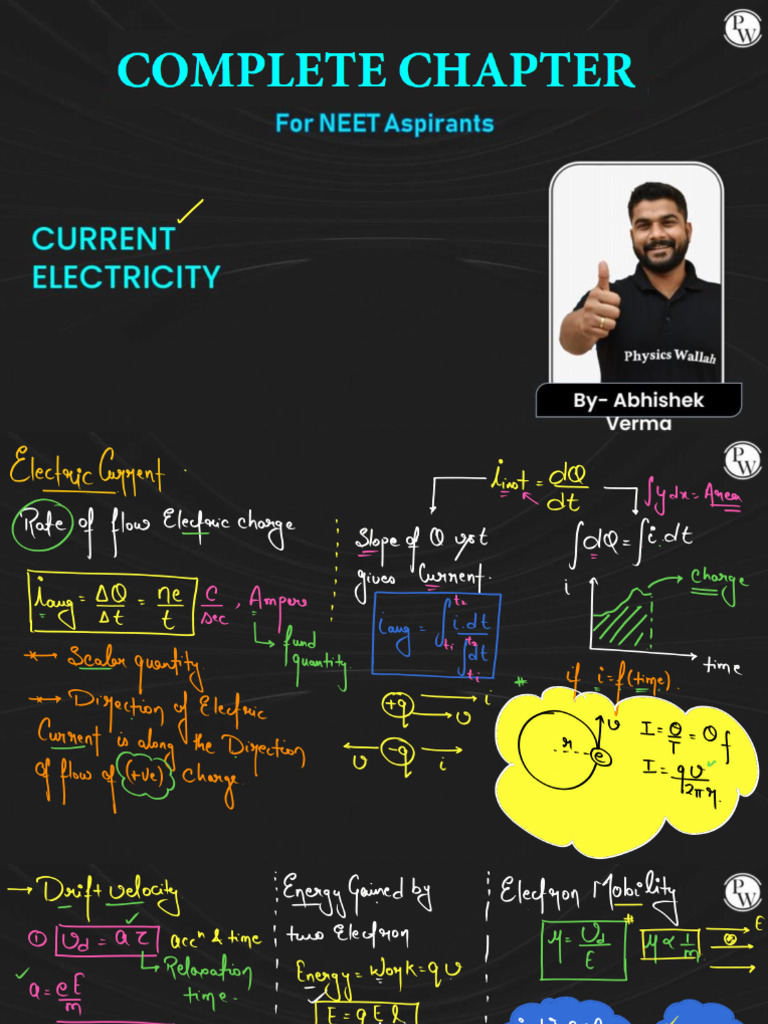 PW
COMPLETE CHAPTER
For NEET Aspirants
CURRENT
ELECTRICITY
Physics Wallah
By- Abhishek
Verma
PW
Electric Current
Rate of flow Electric charge
i_avg = ΔQ/Δt = ne/t C/sec, Ampere
fund
quantity
* Scalar quantity
* Direction of Electric
Current is along the Direction
of flow of (+ve) charge
i_inst = dQ/dt
Slope of Q vs t
gives Current
i_avg = ∫_{t1}^{t2} i.dt / ∫_{t1}^{t2} dt
+q i
v
-q
v i
∫ydx = Area
∫dQ = ∫i.dt
i
charge
time
# if i = f(time)
r e v
I = Q/T = Qf
I = qv/2πr
PW
→ Drift velocity
① v_d = aτ accⁿ & time
Relaxation
time
a = eE/m
Energy Gained by
two Electron
Energy = Work = qv
E = qEl
Electron Mobility
μ = v_d/E
# μ ∝ 1/m
E